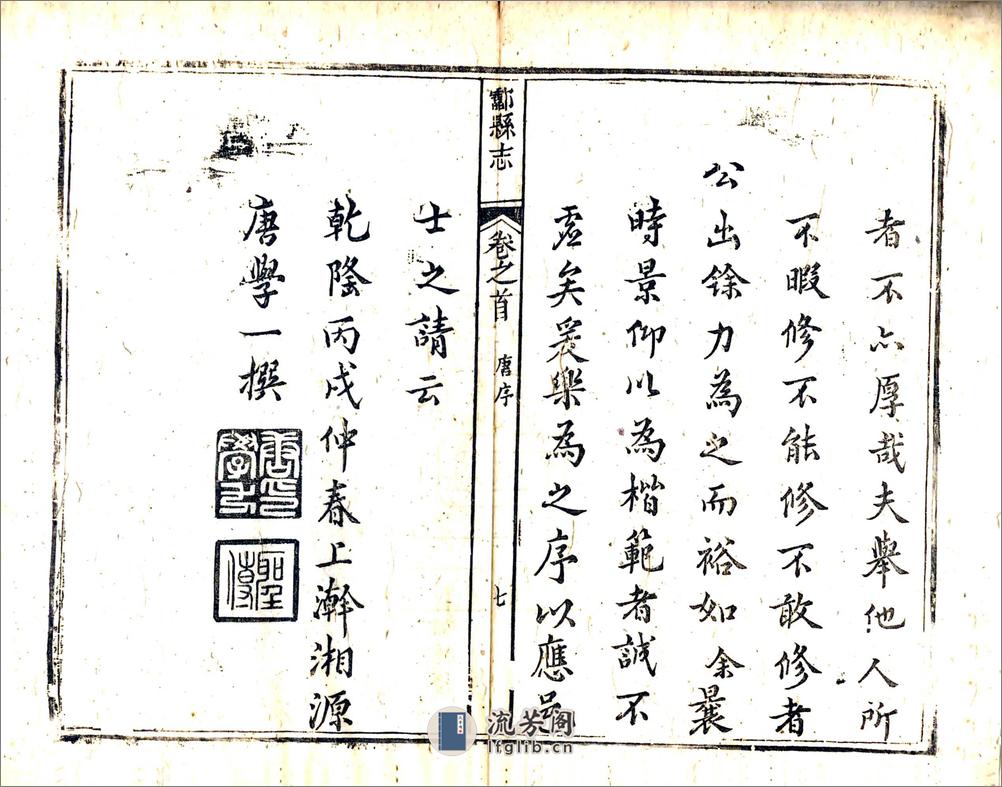 者不亦厚哉夫舉他人所
不暇修不能修不敢修者
公出餘力為之而裕如余曩
時景仰以為楷範者誠不
虛矣爰樂為之序以應
酃縣志
卷之首
唐序
七
士之請云
乾隆丙戌仲春上澣湘源
唐學一撰
流芳阁
ltglib.cn